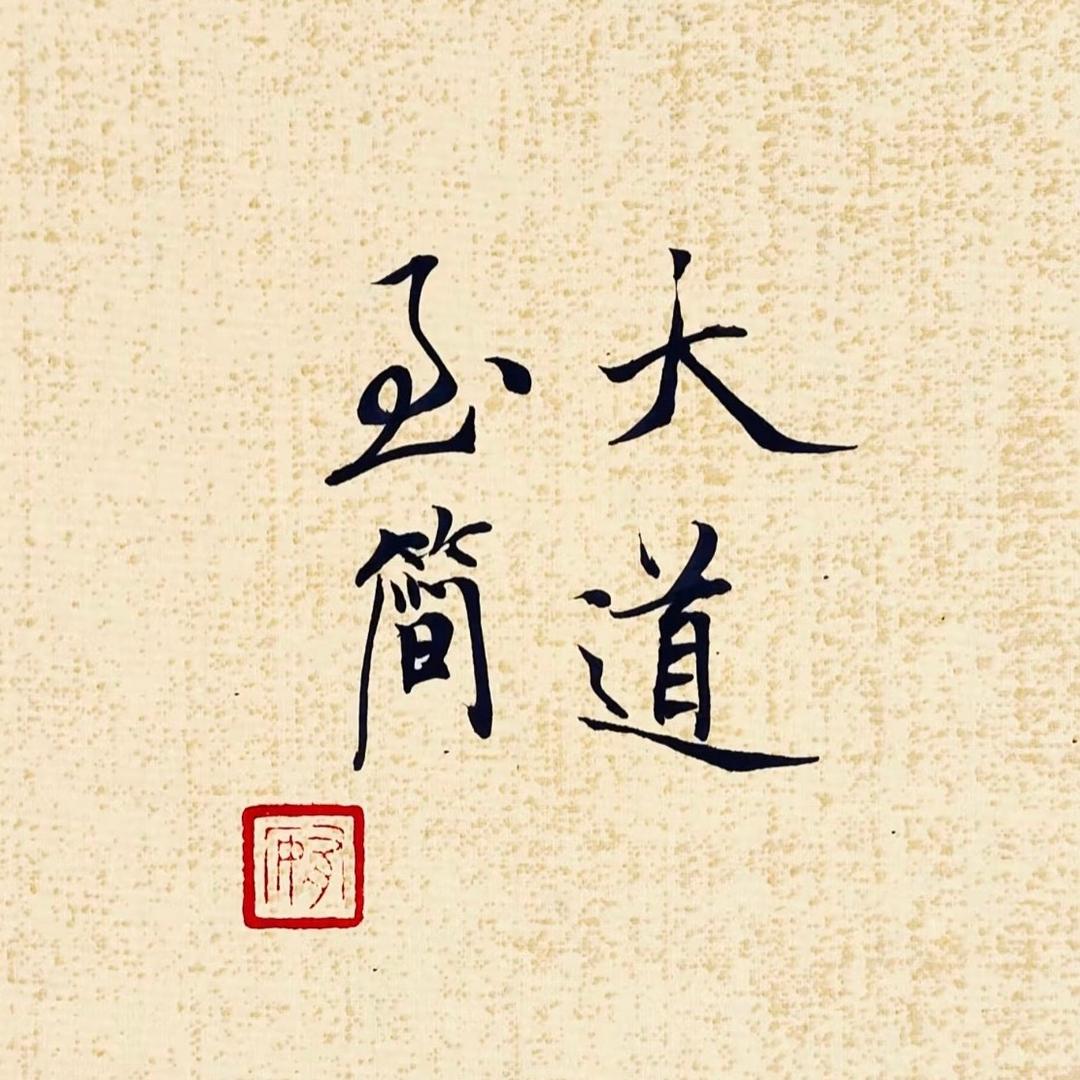 大道
至簡